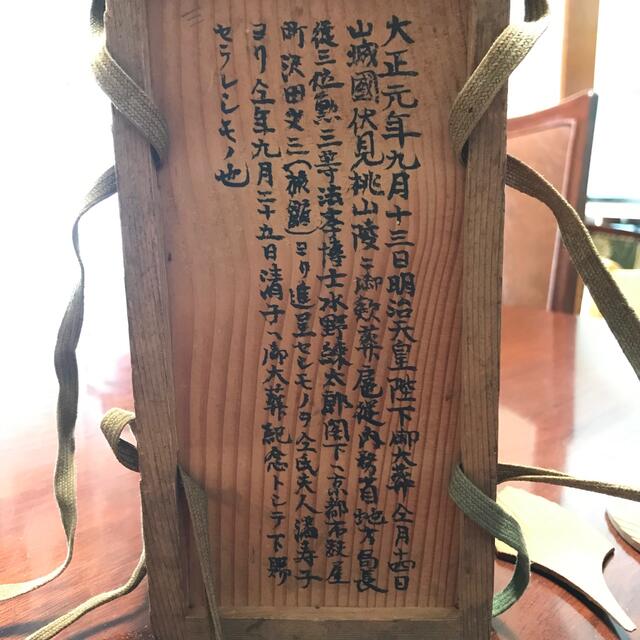 大正元年九月十三日明治天皇陛下御大葬仝月十四日
山城國伏見桃山陵ニ御歛葬扈從內務省地方局長
從三位勲三等法学博士水野錬太郎閣下ニ京都市数屋
町沢田文三(旅館)ヨリ進呈セシモノヲ仝氏夫人満寿子
ヨリ仝年九月二十五日清子ヘ御大葬記念トシテ下賜
セラレシモノ也